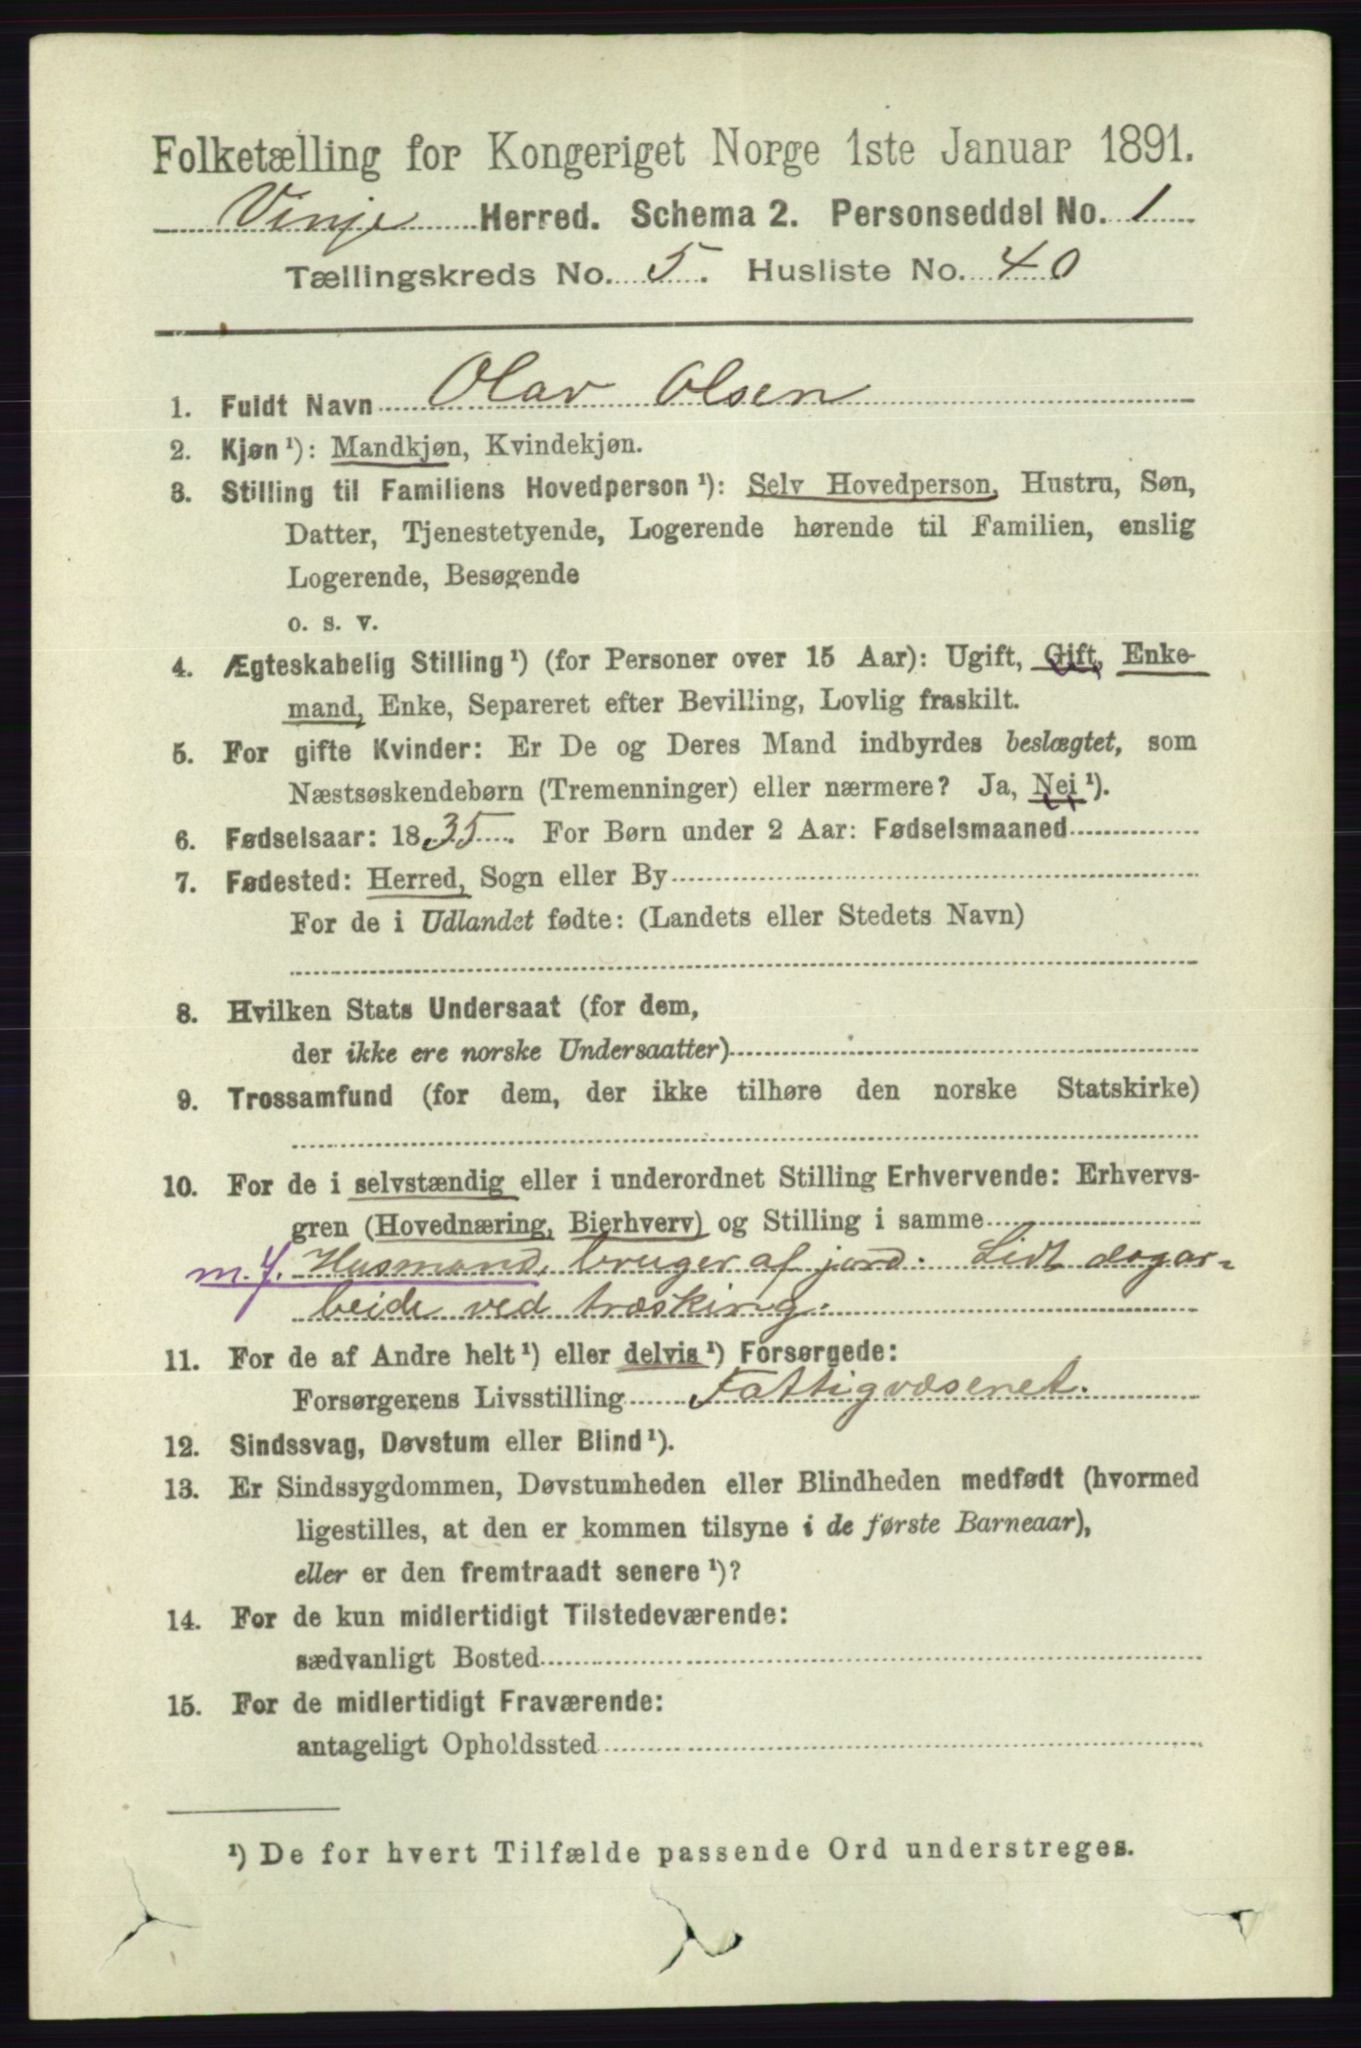 Folketælling for Kongeriget Norge 1ste Januar 1891.
Vinje Herred. Schema 2. Personseddel No. 1
Tællingskreds No. 5. Husliste No. 40
1. Fuldt Navn Olav Olsen
2. Kjøn ¹): Mandkjøn, Kvindekjøn.
3. Stilling til Familiens Hovedperson ¹): Selv Hovedperson, Hustru, Søn,
Datter, Tjenestetyende, Logerende hørende til Familien, enslig
Logerende, Besøgende
o. s. v.
4. Ægteskabelig Stilling ¹) (for Personer over 15 Aar): Ugift, Gift, Enke-
mand, Enke, Separeret efter Bevilling, Lovlig fraskilt.
5. For gifte Kvinder: Er De og Deres Mand indbyrdes beslægtet, som
Næstsøskendebørn (Tremenninger) eller nærmere? Ja, Nei ¹).
6. Fødselsaar: 1835. For Børn under 2 Aar: Fødselsmaaned
7. Fødested: Herred, Sogn eller By
For de i Udlandet fødte: (Landets eller Stedets Navn)
8. Hvilken Stats Undersaat (for dem,
der ikke ere norske Undersaatter)
9. Trossamfund (for dem, der ikke tilhøre den norske Statskirke)
10. For de i selvstændig eller i underordnet Stilling Erhvervende: Erhvervs-
gren (Hovednæring, Bierhverv) og Stilling i samme
m.j. Husmand, bruger af jord. Lidt dagar-
beide ved træsking.
11. For de af Andre helt ¹) eller delvis ¹) Forsørgede:
Forsørgerens Livsstilling Fattigvæsenet.
12. Sindssvag, Døvstum eller Blind ¹).
13. Er Sindssygdommen, Døvstumheden eller Blindheden medfødt (hvormed
ligestilles, at den er kommen tilsyne i de første Barneaar),
eller er den fremtraadt senere ¹)?
14. For de kun midlertidigt Tilstedeværende:
sædvanligt Bosted
15. For de midlertidigt Fraværende:
antageligt Opholdssted
¹) De for hvert Tilfælde passende Ord understreges.